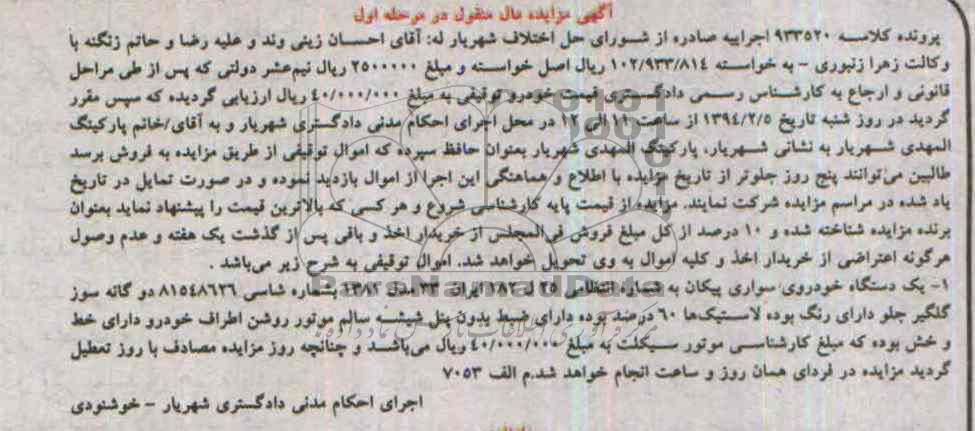 آگهی مزایده مال منقول در مرحله اول
پرونده کلاسه ۹۳۳۵۲۰ اجراییه صادره از شورای حل اختلاف شهریار له: آقای احسان زینی وند و علیه رضا و حاتم زنگنه با
وکالت زهرا زنبوری - به خواسته ۱۰۲/۹۳۳/۸۱۴ ریال اصل خواسته و مبلغ ۲۵۰۰۰۰۰ ریال نیم‌عشر دولتی که پس از طی مراحل
قانونی و ارجاع به کارشناس رسمی دادگستری قیمت خودرو توقیفی به مبلغ ۴۰/۰۰۰/۰۰۰ ریال ارزیابی گردیده که سپس مقرر
گردید در روز شنبه تاریخ ۱۳۹۴/۲/۵ از ساعت ۱۱ الی ۱۲ در محل اجرای احکام مدنی دادگستری شهریار و به آقای/خانم پارکینگ
المهدی شهریار به نشانی شهریار، پارکینگ المهدی شهریار بعنوان حافظ سپرده که اموال توقیفی از طریق مزایده به فروش برسد
طالبین می‌توانند پنج روز جلوتر از تاریخ مزایده با اطلاع و هماهنگی این اجرا از اموال بازدید نموده و در صورت تمایل در تاریخ
یاد شده در مراسم مزایده شرکت نمایند. مزایده از قیمت پایه کارشناسی شروع و هر کسی که بالاترین قیمت را پیشنهاد نماید بعنوان
برنده مزایده شناخته شده و ۱۰ درصد از کل مبلغ فروش فی‌المجلس از خریدار اخذ و باقی پس از گذشت یک هفته و عدم وصول
هرگونه اعتراضی از خریدار اخذ و کلیه اموال به وی تحویل خواهد شد. اموال توقیفی به شرح زیر می‌باشد .
۱- یک دستگاه خودروی سواری پیکان به شماره انتظامی ۲۵ ل ۱۸۲ ایران ۳۳ مدل ۱۳۸۲ بشماره شاسی ۸۱۵۴۸۶۳۶ دو گانه سوز
گلگیر جلو دارای رنگ بوده لاستیک‌ها ۶۰ درصد بوده دارای ضبط بدون پنل شیشه سالم موتور روشن اطراف خودرو دارای خط
و خش بوده که مبلغ کارشناسی موتور سیکلت به مبلغ ۴۰/۰۰۰/۰۰۰ ریال می‌باشد و چنانچه روز مزایده مصادف با روز تعطیل
گردید مزایده در فردای همان روز و ساعت انجام خواهد شد.م الف ۷۰۵۳
اجرای احکام مدنی دادگستری شهریار - خوشنودی
ParsNamadData